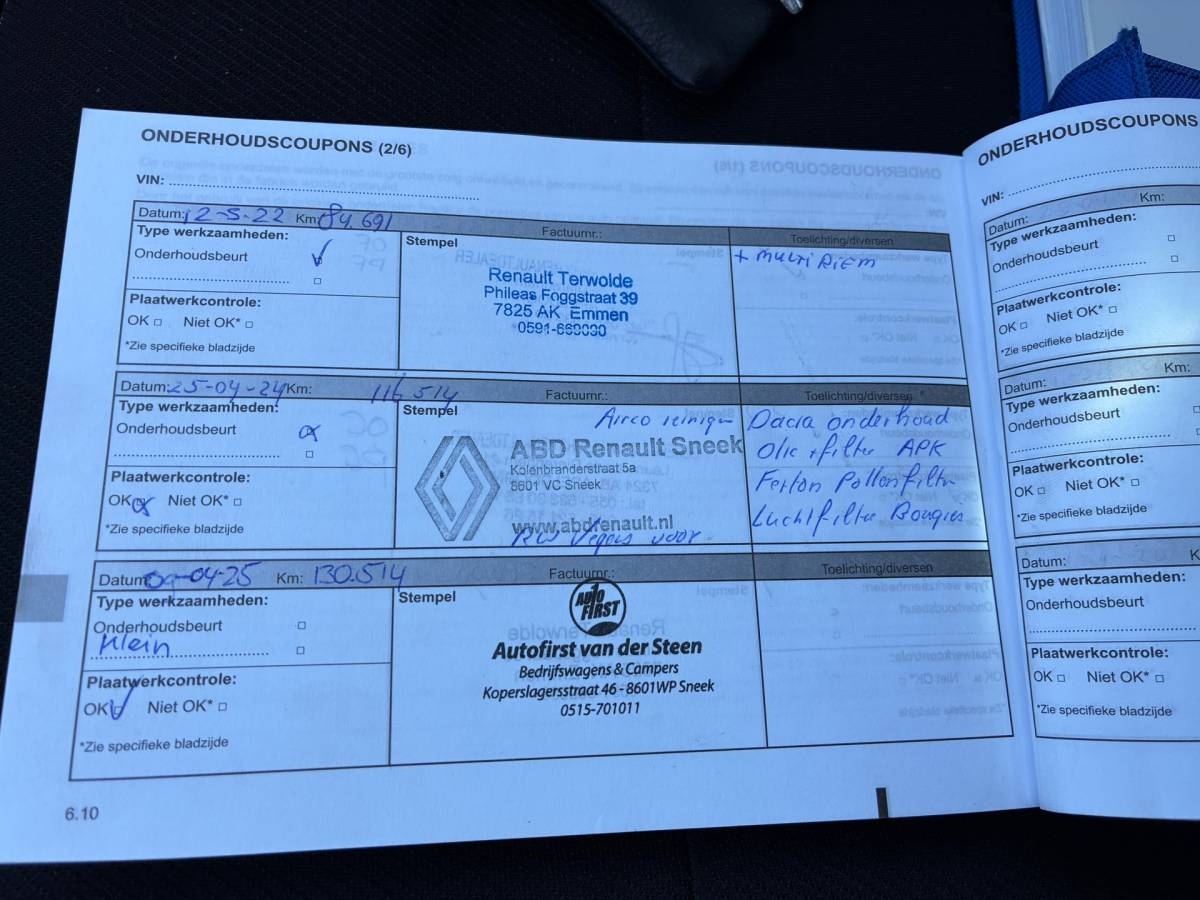 ONDERHOUDSCOUPONS (2/6)
VIN:
Datum: 12-5-22 Km: 84.691 Factuurnr.: Toelichting/diversen
Type werkzaamheden:
Onderhoudsbeurt
Stempel
Renault Terwolde
Phileas Foggstraat 39
7825 AK Emmen
+ MULTI RIEM
Plaatwerkcontrole:
OK Niet OK*
*Zie specifieke bladzijde
Datum: 25-04-24 Km: 116 514 Factuurnr.: Toelichting/diversen *
Type werkzaamheden:
Onderhoudsbeurt
Stempel
Airco reinigen
ABD Renault Sneek
Kolenbranderstraat 5a
8601 VC Sneek
www.abdrenault.nl
voor
Dacia onderhoud
Olie + filter APK
Pollenfilter
Luchtfilter Bougies
Plaatwerkcontrole:
OK Niet OK*
*Zie specifieke bladzijde
Datum: 09-04-25 Km: 130.514 Factuurnr.: Toelichting/diversen
Type werkzaamheden:
Onderhoudsbeurt
Klein
Stempel
AUTO
FIRST
Autofirst van der Steen
Bedrijfswagens & Campers
Koperslagersstraat 46 - 8601WP Sneek
0515-701011
Plaatwerkcontrole:
OK Niet OK*
*Zie specifieke bladzijde
6.10
ONDERHOUDSCOUPONS
VIN:
Datum: Km:
Type werkzaamheden:
Onderhoudsbeurt
Plaatwerkcontrole:
OK Niet OK*
*Zie specifieke bladzijde
Datum: Km:
Type werkzaamheden:
Onderhoudsbeurt
Plaatwerkcontrole:
OK Niet OK*
*Zie specifieke bladzijde
Datum:
Type werkzaamheden:
Onderhoudsbeurt
Plaatwerkcontrole:
OK Niet OK*
*Zie specifieke bladzijde